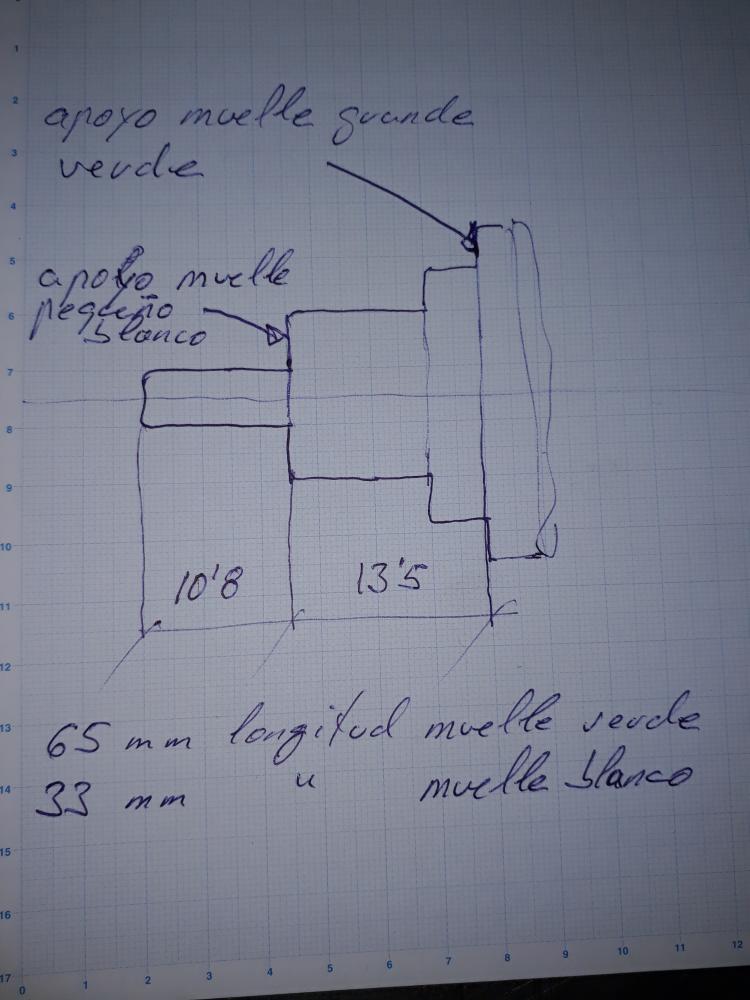 apoyo muelle grande
verde
apoyo muelle
pequeño
blanco
10'8
13'5
65 mm longitud muelle verde
33 mm " muelle blanco
1
2
3
4
5
6
7
8
9
10
11
12
13
14
15
16
17
0 1 2 3 4 5 6 7 8 9 10 11 12